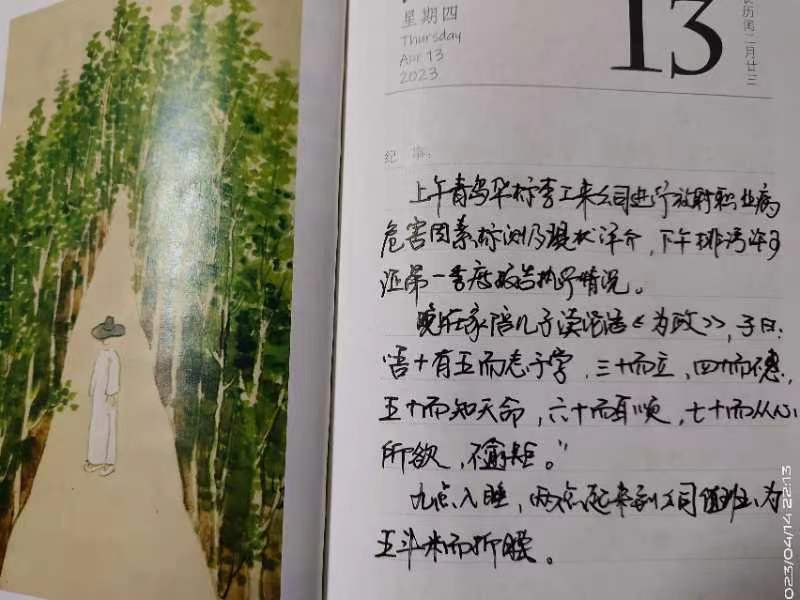 星期四
Thursday
Apr 13
2023
13
历闰二月廿三
纪事:
上午青岛华标李工来公司进行放射职业病
危害因素标测及现状评价，下午排污许可
证第一季度报告执行情况。
晚在家陪儿子读论语《为政》，子曰：
“吾十有五而志于学，三十而立，四十而不惑，
五十而知天命，六十而耳顺，七十而从心
所欲，不逾矩。”
九点入睡，两点起来到公司值班，为
五斗米而折腰。
023/04/14 22:13